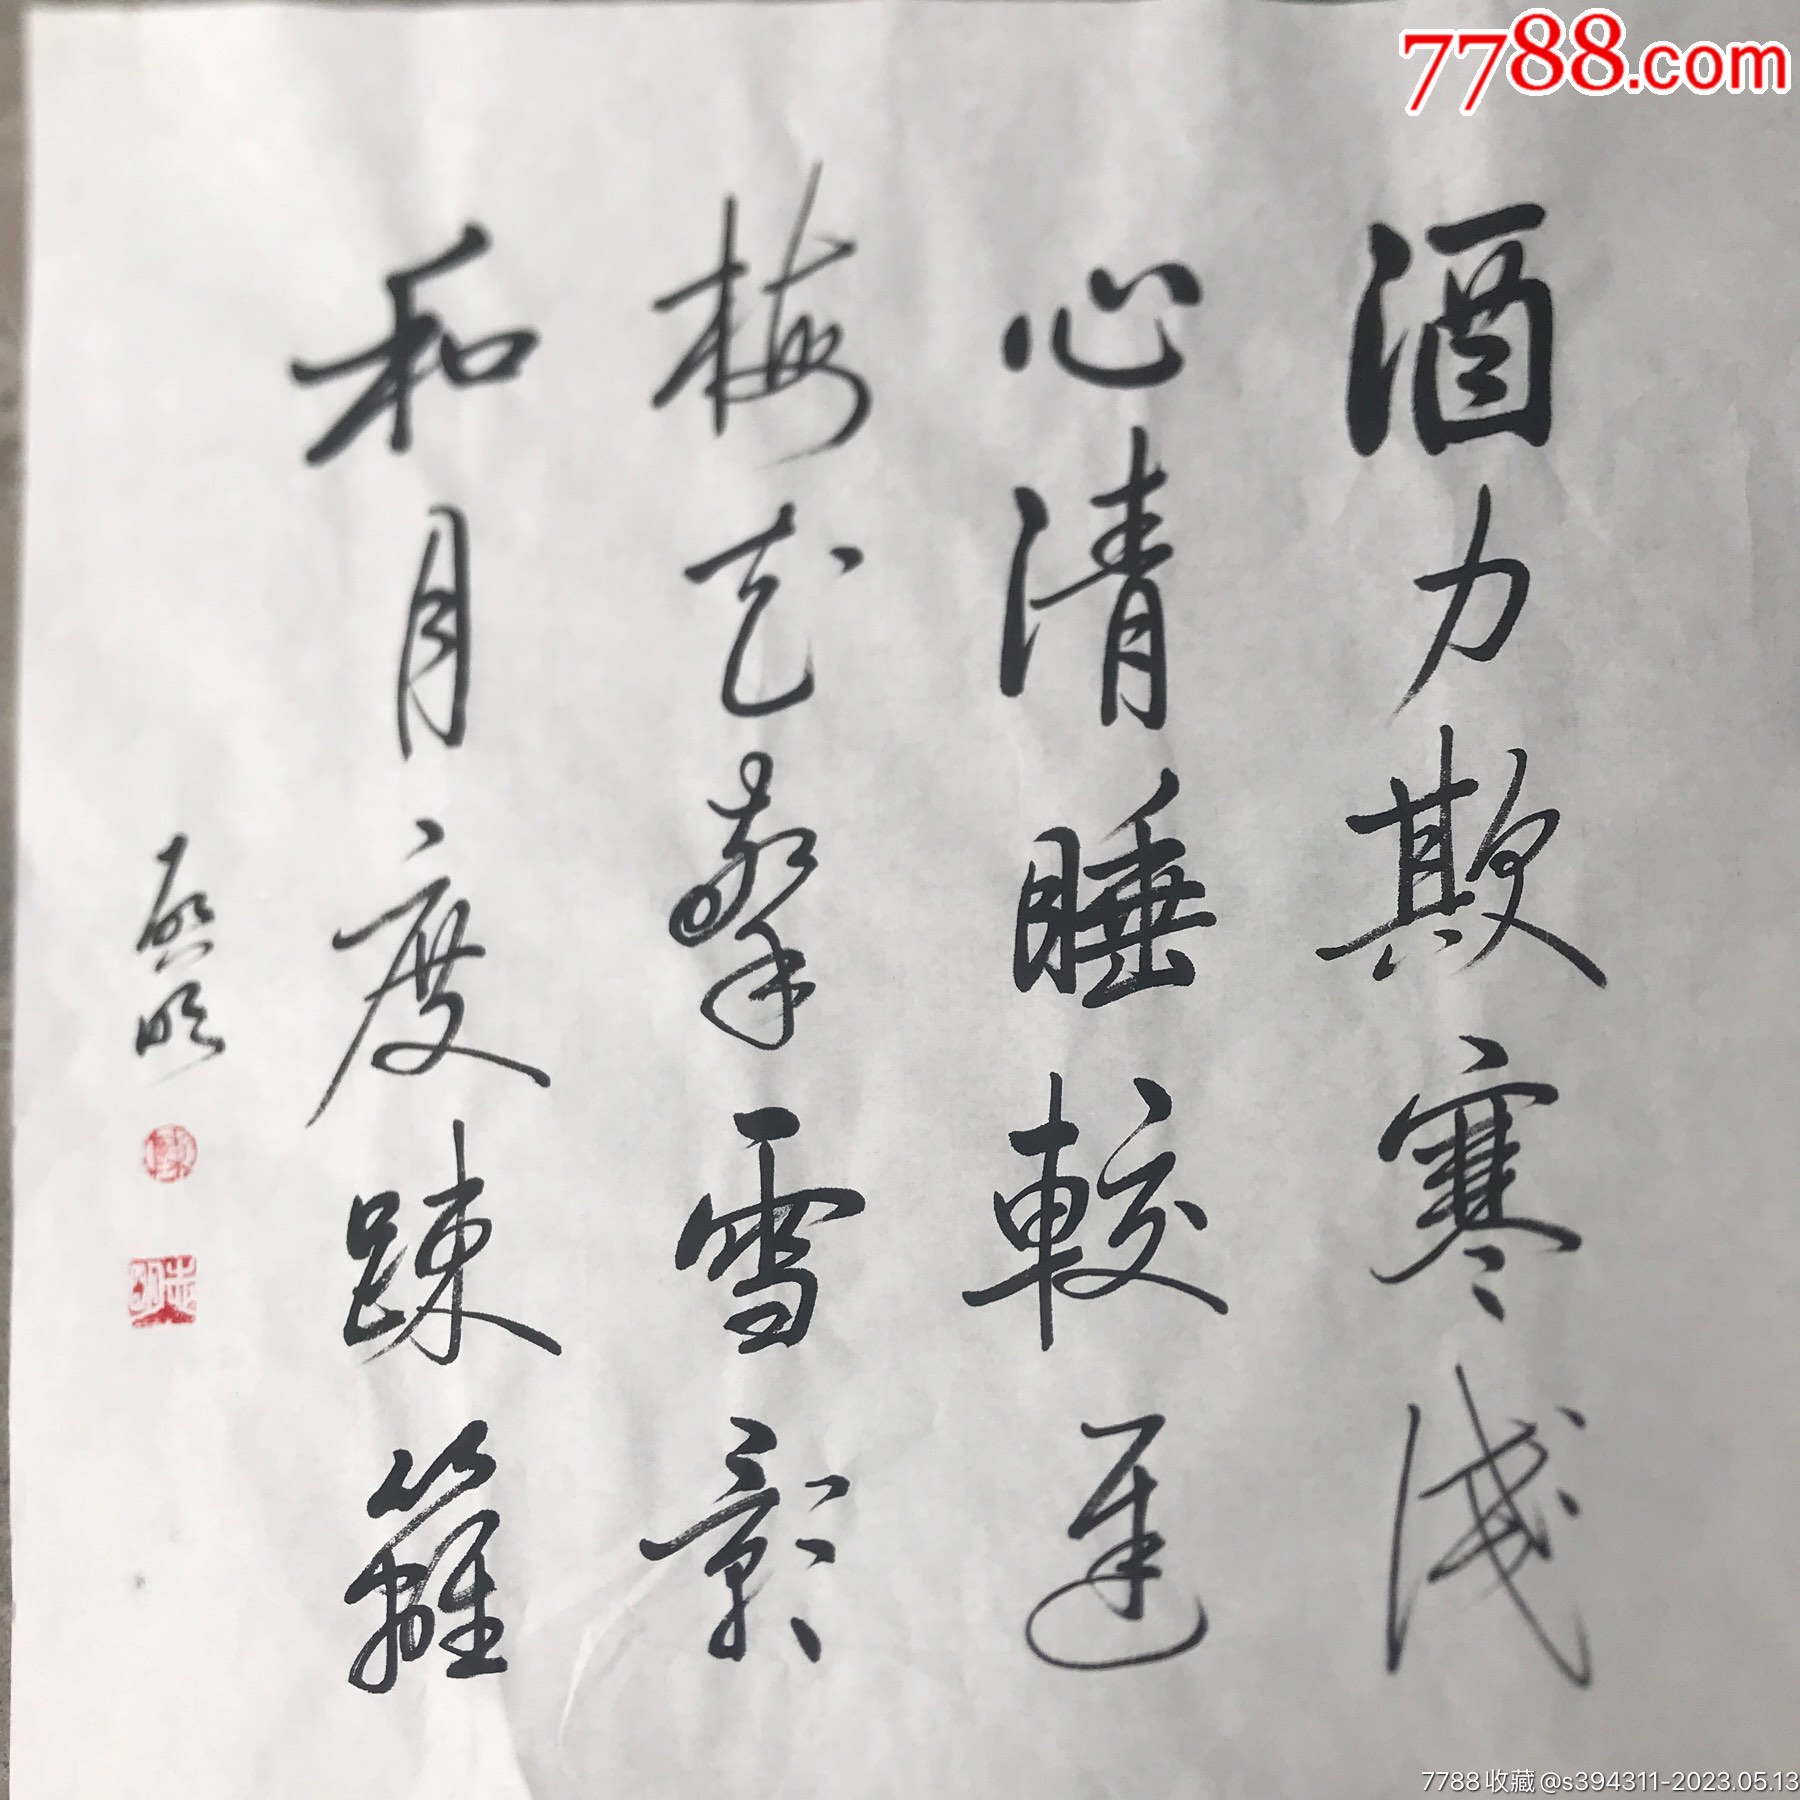 酒力欺寒浅
心清睡較遲
梅花擎雪影
和月度疎籬
啟明
7788.com
7788收藏@s394311-2023.05.13